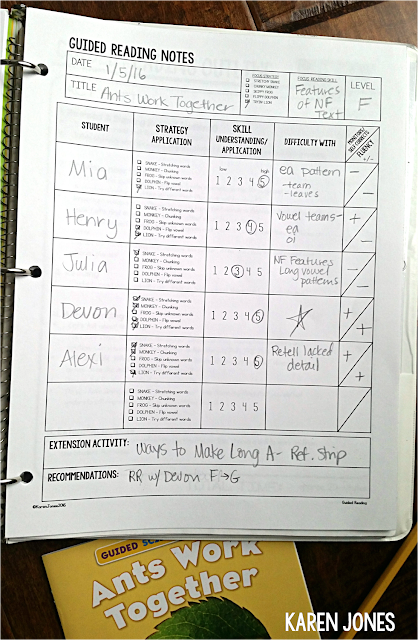 GUIDED READING NOTES
DATE 1/5/16
TITLE Ants Work Together
FOCUS STRATEGY
STRETCHY SNAKE
CHUNKY MONKEY
SKIPPY FROG
FLIPPY DOLPHIN
TRYIN' LION
FOCUS READING SKILL
Features
of NF
Text
LEVEL
F
STUDENT
STRATEGY
APPLICATION
SKILL
UNDERSTANDING/
APPLICATION
DIFFICULTY WITH
MONITORS/
SELF CORRECTS
FLUENCY
+/-
Mia
SNAKE - Stretching words
MONKEY - Chunking
FROG - Skip unknown words
DOLPHIN - Flip vowel
LION - Try different words
low high
1 2 3 4 5
ea pattern
-team
-leaves
-
-
Henry
SNAKE - Stretching words
MONKEY - Chunking
FROG - Skip unknown words
DOLPHIN - Flip vowel
LION - Try different words
1 2 3 4 5
Vowel teams-
ea
oi
+
-
Julia
SNAKE - Stretching words
MONKEY - Chunking
FROG - Skip unknown words
DOLPHIN - Flip vowel
LION - Try different words
1 2 3 4 5
NF Features
Long vowel
patterns
-
-
Devon
SNAKE - Stretching words
MONKEY - Chunking
FROG - Skip unknown words
DOLPHIN - Flip vowel
LION - Try different words
1 2 3 4 5
+
+
Alexi
SNAKE - Stretching words
MONKEY - Chunking
FROG - Skip unknown words
DOLPHIN - Flip vowel
LION - Try different words
1 2 3 4 5
Retell lacked
detail
+
+
SNAKE - Stretching words
MONKEY - Chunking
FROG - Skip unknown words
DOLPHIN - Flip vowel
LION - Try different words
1 2 3 4 5
EXTENSION ACTIVITY: Ways to Make Long A- Ref. Strip
RECOMMENDATIONS: RR w/ Devon F→G
©KarenJones2016
Guided Reading
GUIDED
Ants Work
Together
KAREN JONES